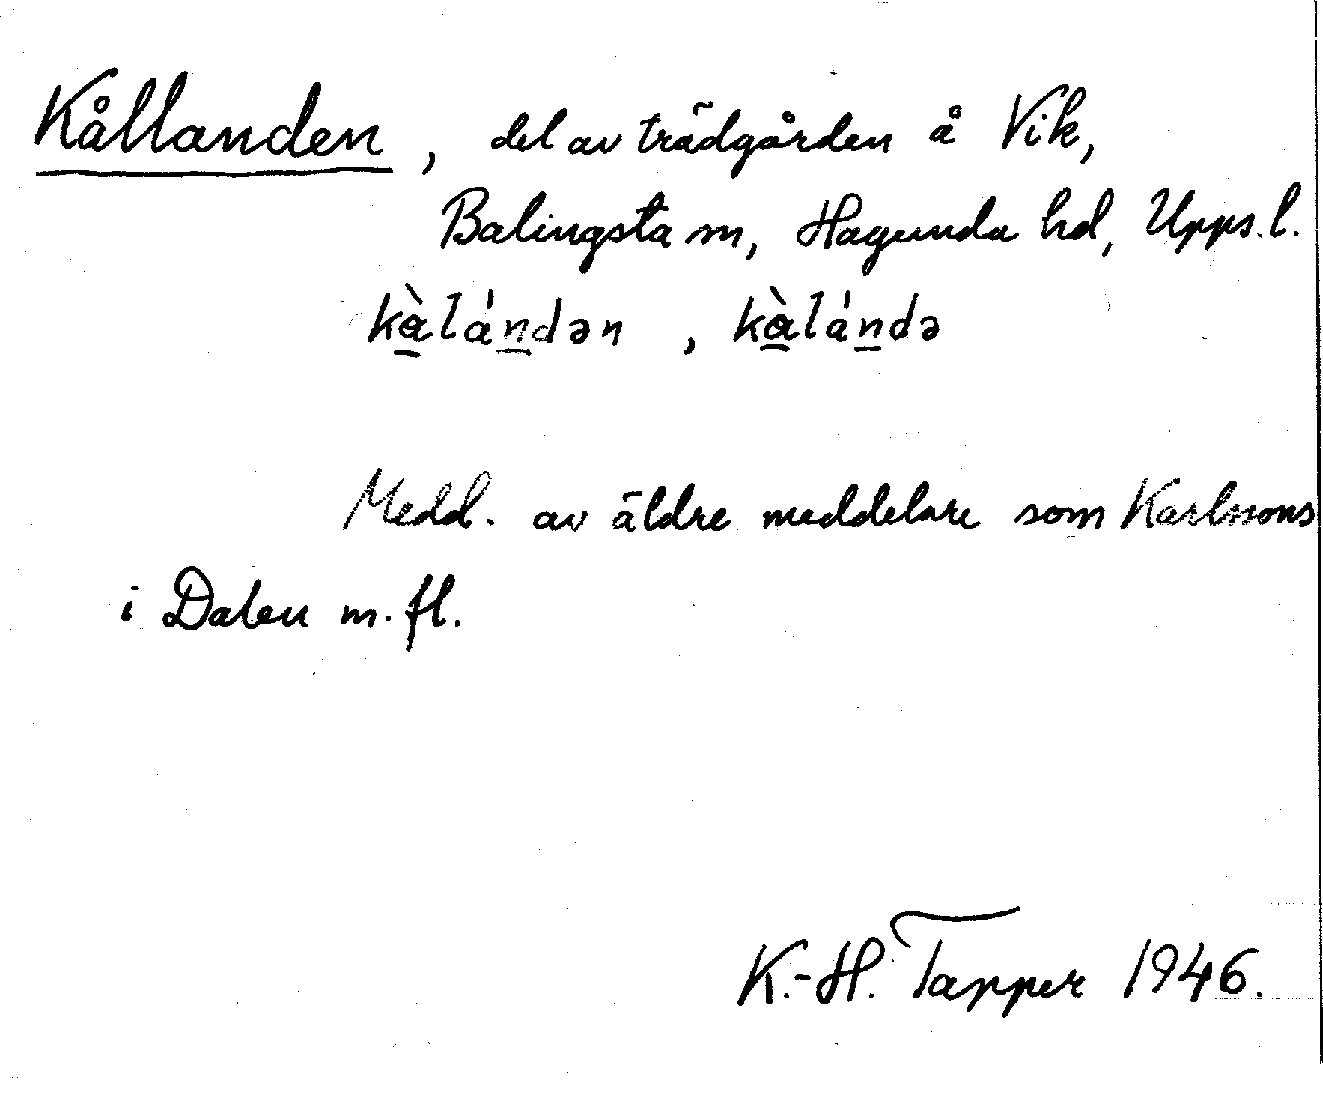 Kållanden, del av trädgården å Vik,
Balingsta sn, Hagunda hd, Upps. l.
kὰlándən, kὰlándə
Medd. av äldre meddelare som Karlssons
i Dalen m. fl.
K.-H. Tapper 1946.